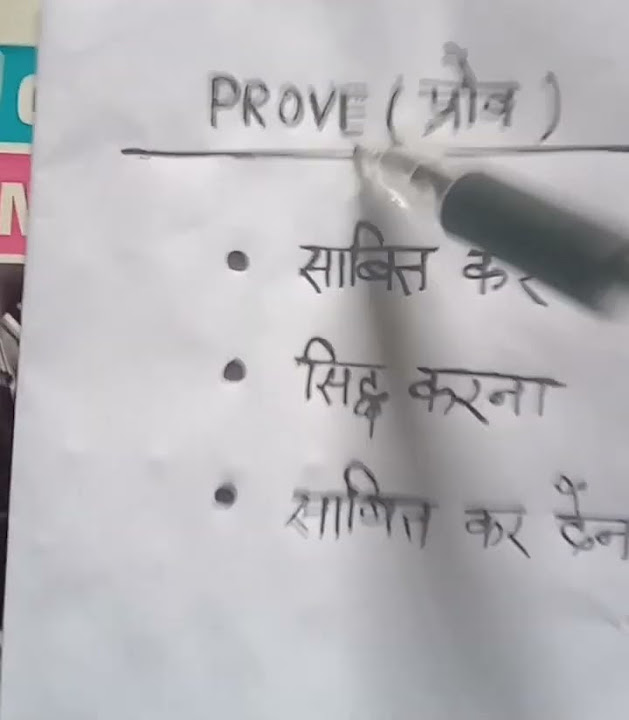 PROVE ( प्रौव )
• साबित कर
• सिद्ध करना
• साबित कर देन